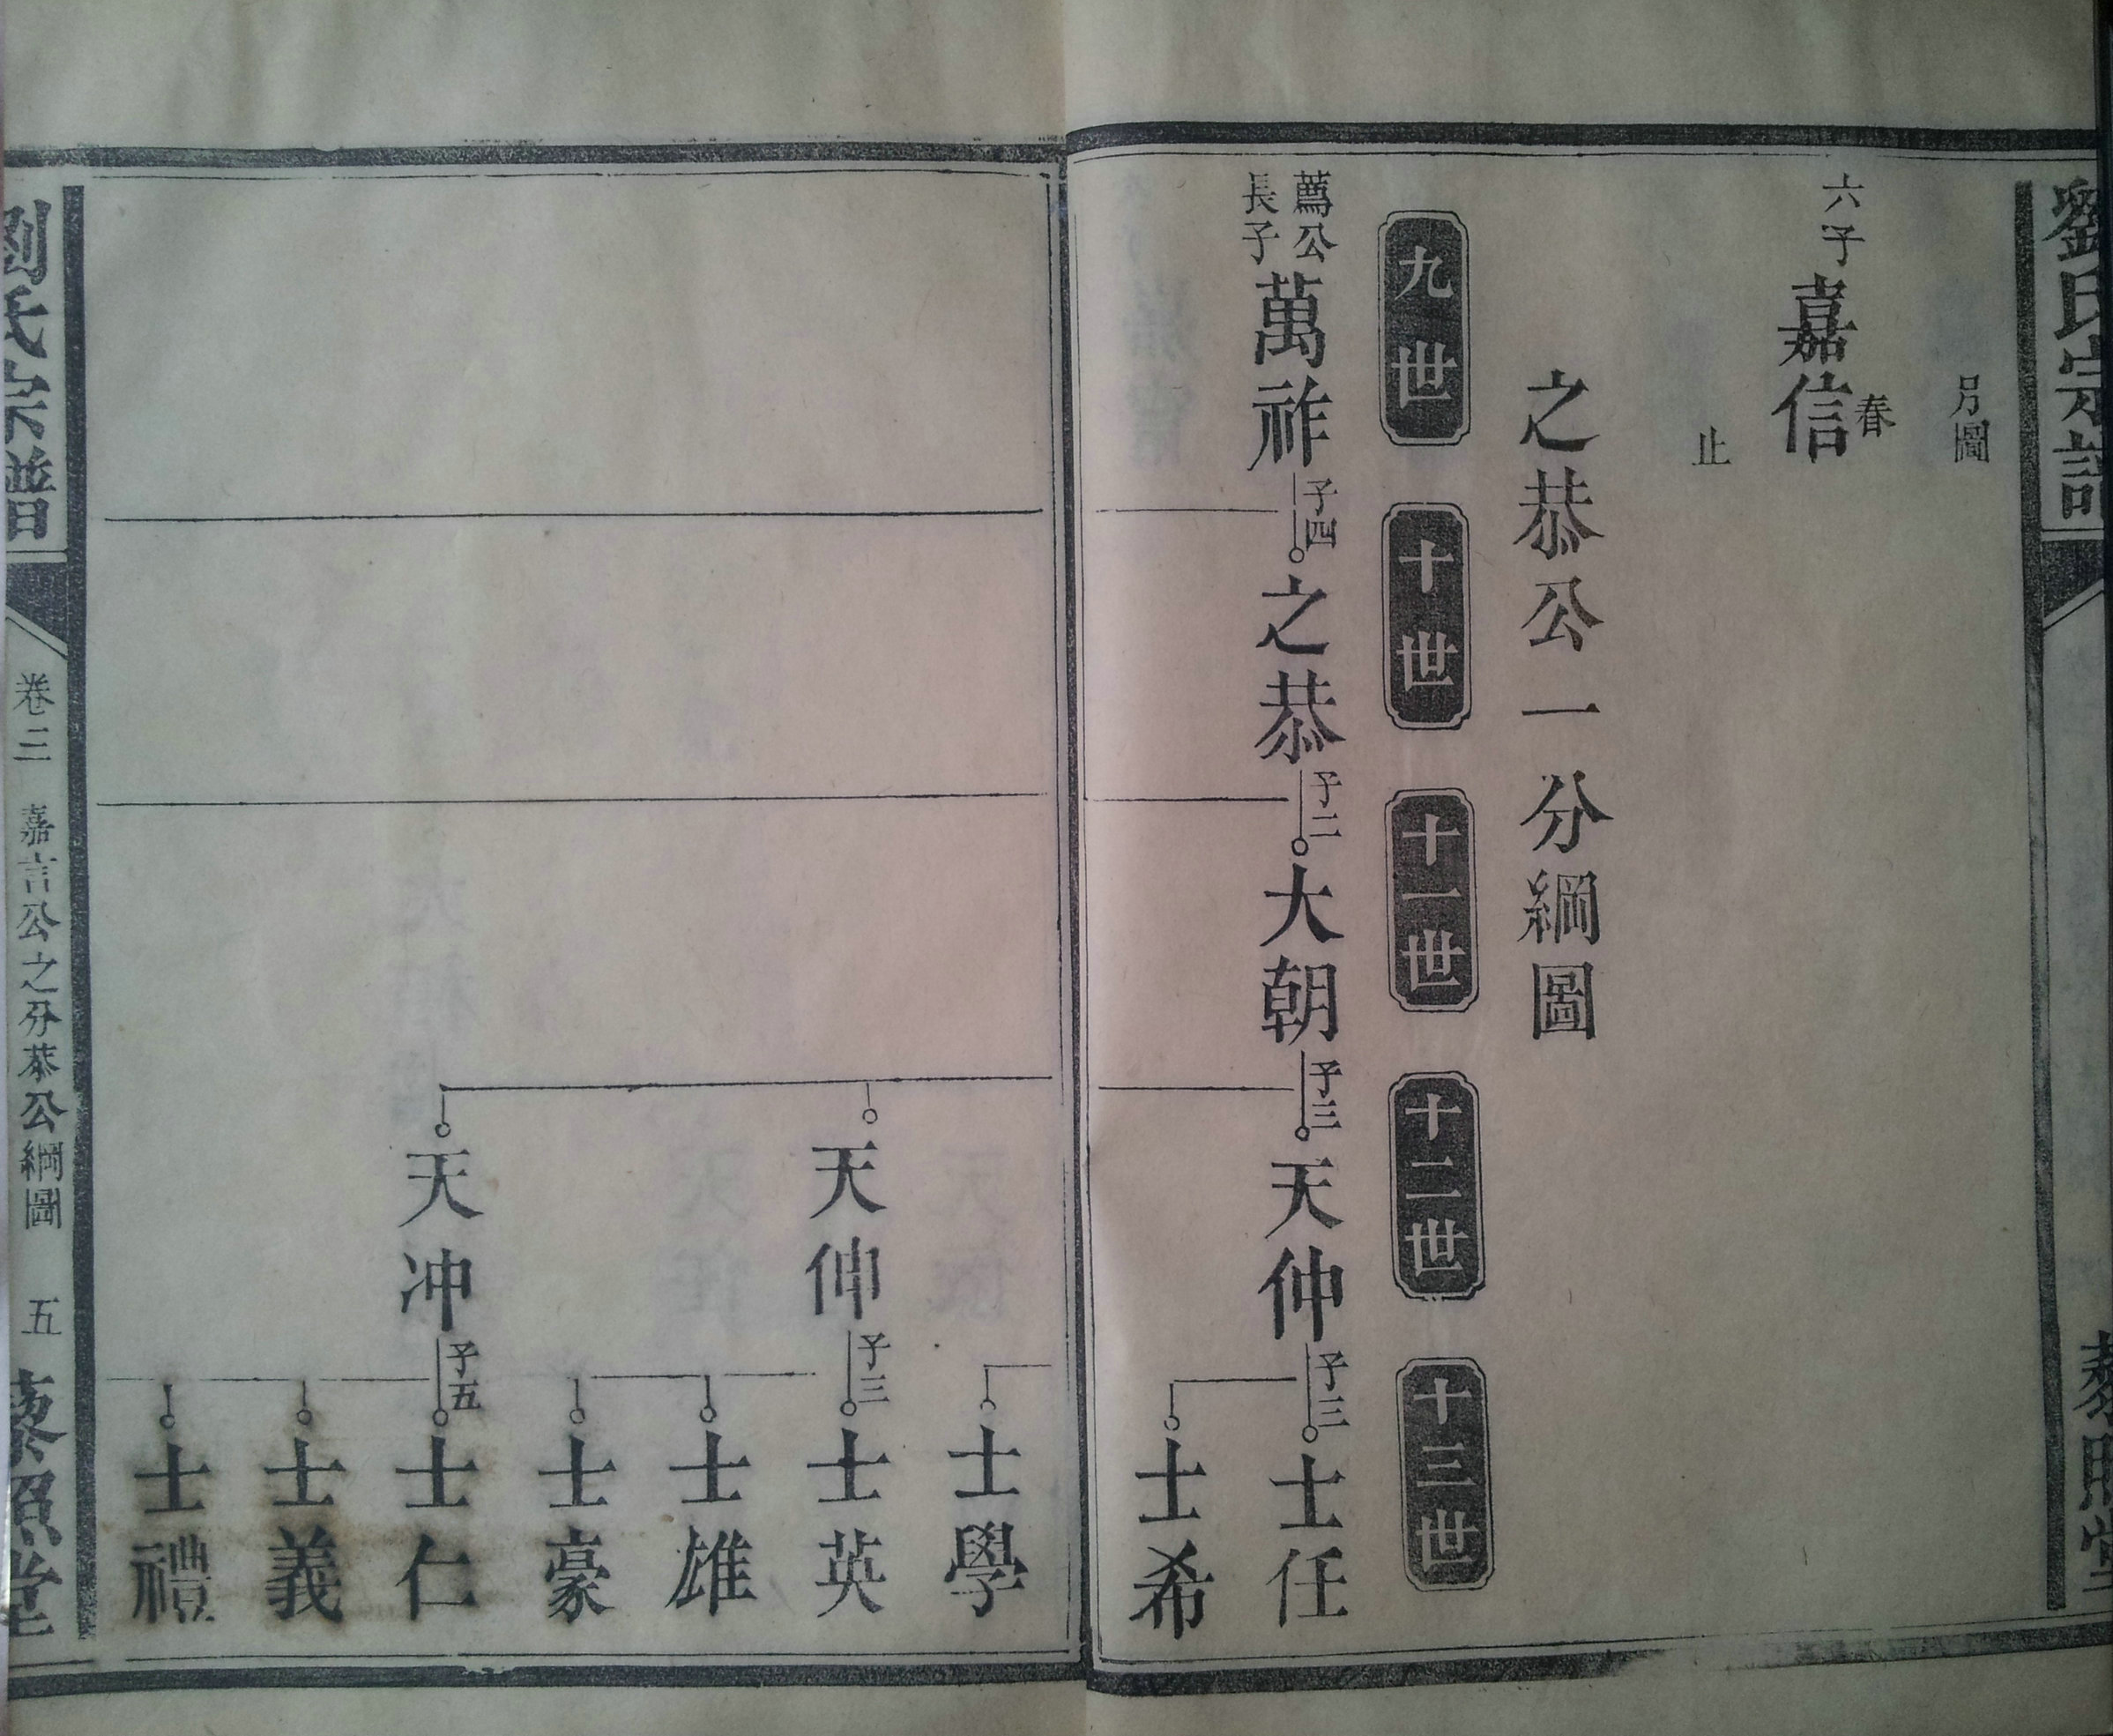 劉氏宗譜
藜照堂
另圖
六子嘉信
春
止
之恭公一分綱圖
九世
十世
十一世
十二世
十三世
蔿公
長子
萬祚
子四
之恭
子二
大朝
子三
天仲
子三
士任
士希
士學
天伸
子三
士英
士雄
士豪
天冲
子五
士仁
士義
士禮
劉氏宗譜
卷三
嘉言公之分恭公綱圖
五
藜照堂